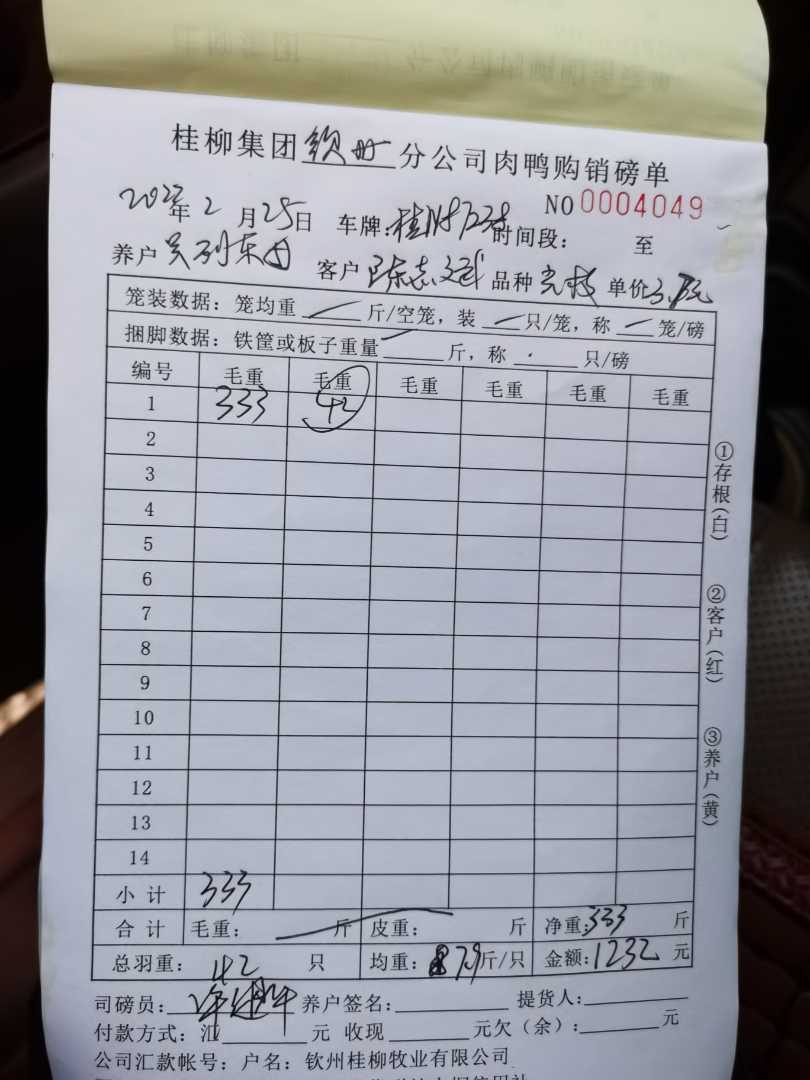 桂柳集团钦州分公司肉鸭购销磅单
NO 0004049
年2月25日 车牌: 时间段: 至
养户 客户 陈志文 品种 单价
笼装数据: 笼均重 斤/空笼, 装 只/笼, 称 笼/磅
捆脚数据: 铁筐或板子重量 斤, 称 只/磅
编号 毛重 毛重 毛重 毛重 毛重 毛重
1 333 42
2
3
4
5
6
7
8
9
10
11
12
13
14
小计 333
合计 毛重: 斤 皮重: 斤 净重: 333 斤
总羽重: 42 只 均重: 7.9斤/只 金额: 1232 元
①存根(白)
②客户(红)
③养户(黄)
司磅员: 养户签名: 提货人:
付款方式: 汇 元 收现 元欠(余): 元
公司汇款帐号: 户名: 钦州桂柳牧业有限公司